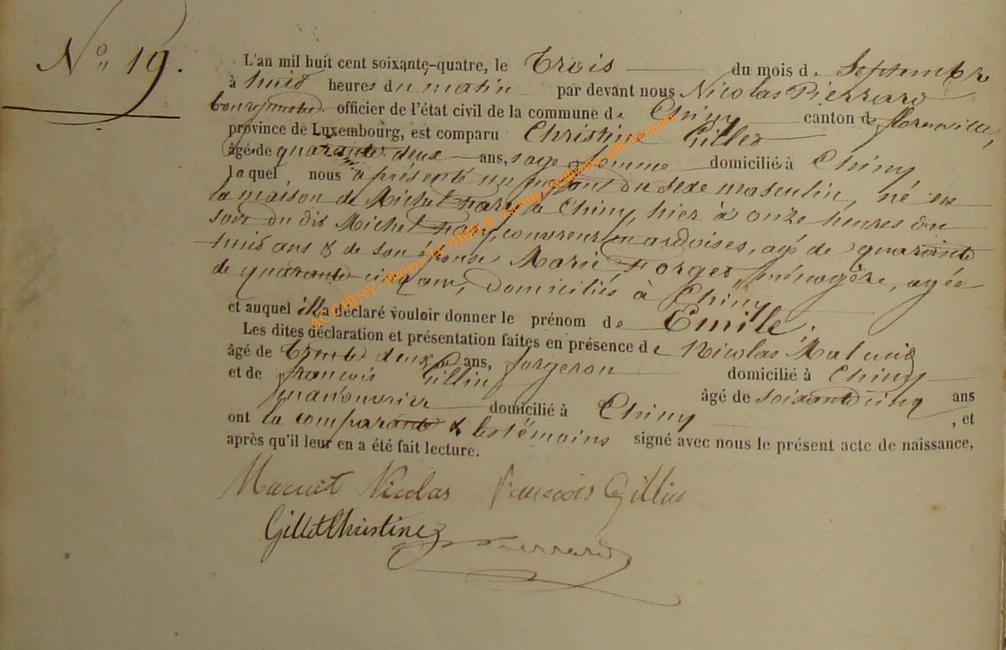 N° 19.
L'an mil huit cent soixante-quatre, le Trois du mois de Septembre
à huit heures du matin par devant nous Nicolas Pierrard
bourgmestre officier de l'état civil de la commune de Chiny canton de florenville,
province de Luxembourg, est comparu Christine Gillet
âgé de quarante deux ans, sage femme domicilié à Chiny
laquel nous a présenté un enfant du sexe masculin, né en
la maison de Michel à Chiny, hier à onze heures du
soir du dit Michel couvreur en ardoises, agé de quarante
huit ans & de son épouse Marie Forget ménagère, agée
de quarante cinq ans, domiciliés à Chiny
et auquel illa déclaré vouloir donner le prénom de Emile.
Les dites déclaration et présentation faites en présence de Nicolas
âgé de trente deux ans, forgeron domicilié à Chiny
et de françois Gillin âgé de soixante cinq ans
manouvrier domicilié à Chiny, et
ont la comparante & les témoins signé avec nous le présent acte de naissance,
après qu'il leur en a été fait lecture.
Nicolas françois Gillin
Gillet Christine Pierrard
AC CHINY- Photos